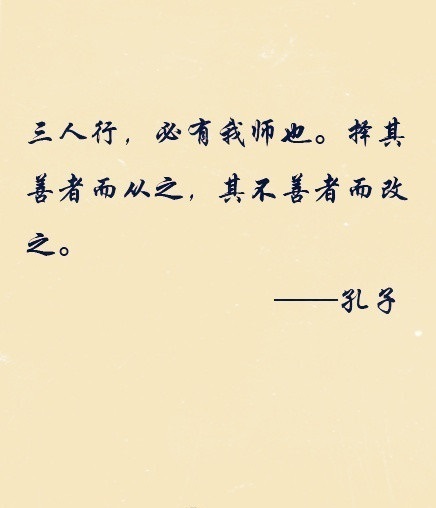 三人行，必有我师也。择其
善者而从之，其不善者而改
之。
——孔子